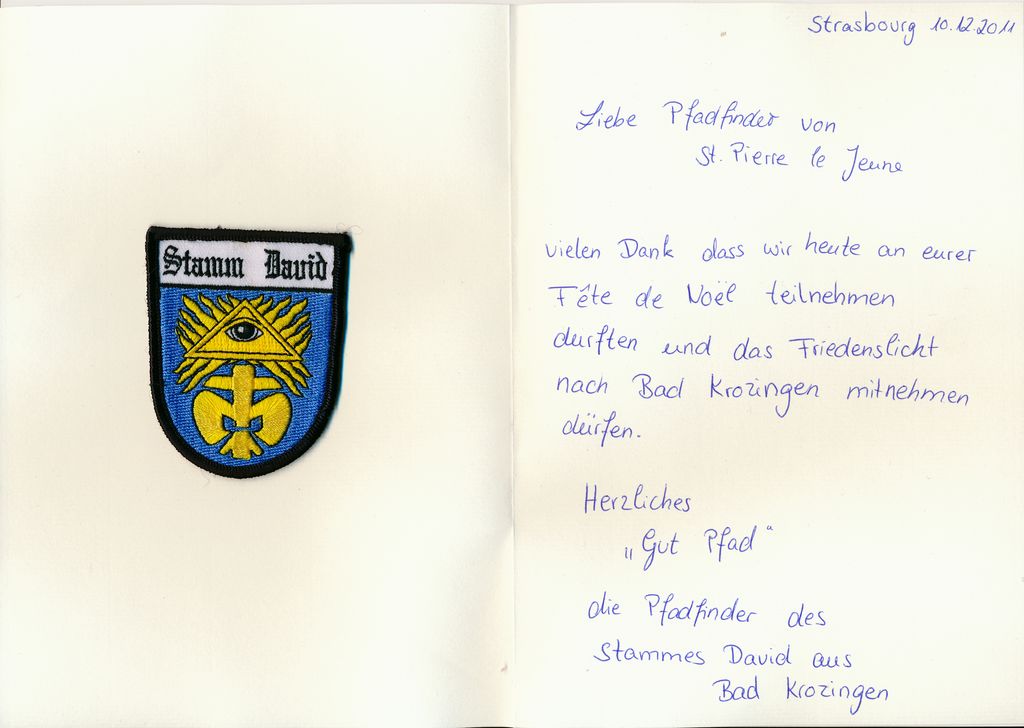 Stamm David
Strasbourg 10.12.2011
Liebe Pfadfinder von
St. Pierre le Jeune
vielen Dank dass wir heute an eurer
Fête de Noël teilnehmen
durften und das Friedenslicht
nach Bad Krozingen mitnehmen
dürfen.
Herzliches
„Gut Pfad“
die Pfadfinder des
Stammes David aus
Bad Krozingen